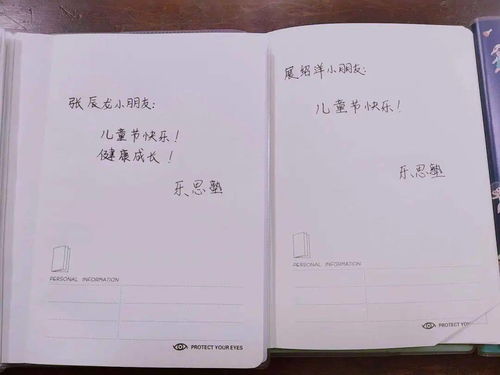 张辰龙小朋友：
儿童节快乐！
健康成长！
乐思塾
PERSONAL INFORMATION
PROTECT YOUR EYES
展绍洋小朋友：
儿童节快乐！
乐思塾
PERSONAL INFORMATION
PROTECT YOUR